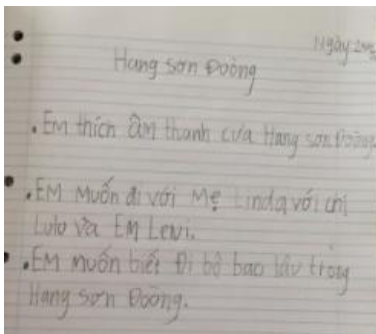 Ngày
Hang sơn Đoòng
. Em thích âm thanh của Hang sơn Đoòng.
. EM Muốn đi với Mẹ Linda với chị
Lulo Và EM Lewi.
. EM muốn biết Đi bộ bao lâu trong
Hang sơn Đoòng.